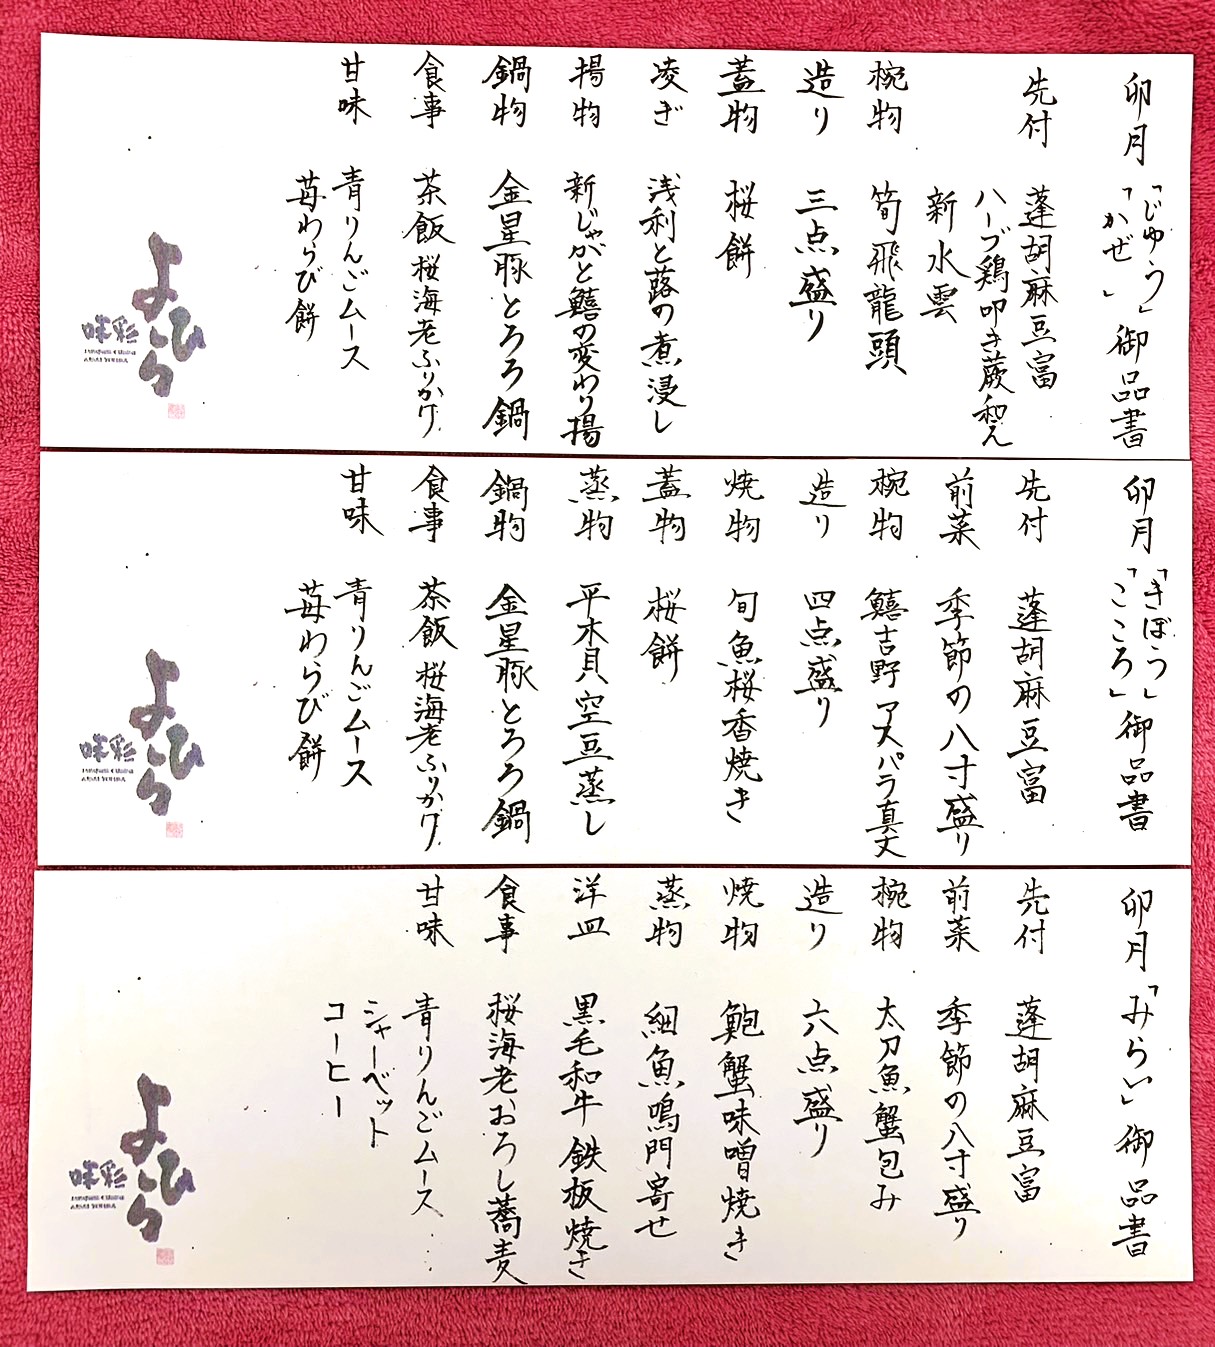 卯月「じゆう」「かぜ」御品書
先付 蓬胡麻豆富
ハーブ鶏叩き蕨和え
新水雲
椀物 筍飛龍頭
造り 三点盛り
蓋物 桜餅
凌ぎ 浅利と蕗の煮浸し
揚物 新じゃがと鱚の変わり揚
鍋物 金星豚とろろ鍋
食事 茶飯 桜海老ふりかけ
甘味 青りんごムース
苺わらび餅
よひら
味彩
卯月「きぼう」「こころ」御品書
先付 蓬胡麻豆富
前菜 季節の八寸盛り
椀物 鱚吉野 アスパラ真丈
造り 四点盛り
焼物 旬魚桜香焼き
蓋物 桜餅
蒸物 平木貝空豆蒸し
鍋物 金星豚とろろ鍋
食事 茶飯 桜海老ふりかけ
甘味 青りんごムース
苺わらび餅
よひら
味彩
卯月「みらい」御品書
先付 蓬胡麻豆富
前菜 季節の八寸盛り
椀物 太刀魚蟹包み
造り 六点盛り
焼物 鮑蟹味噌焼き
蒸物 細魚鳴門寄せ
洋皿 黒毛和牛 鉄板焼き
食事 桜海老おろし蕎麦
甘味 青りんごムース
シャーベット
コーヒー
よひら
味彩